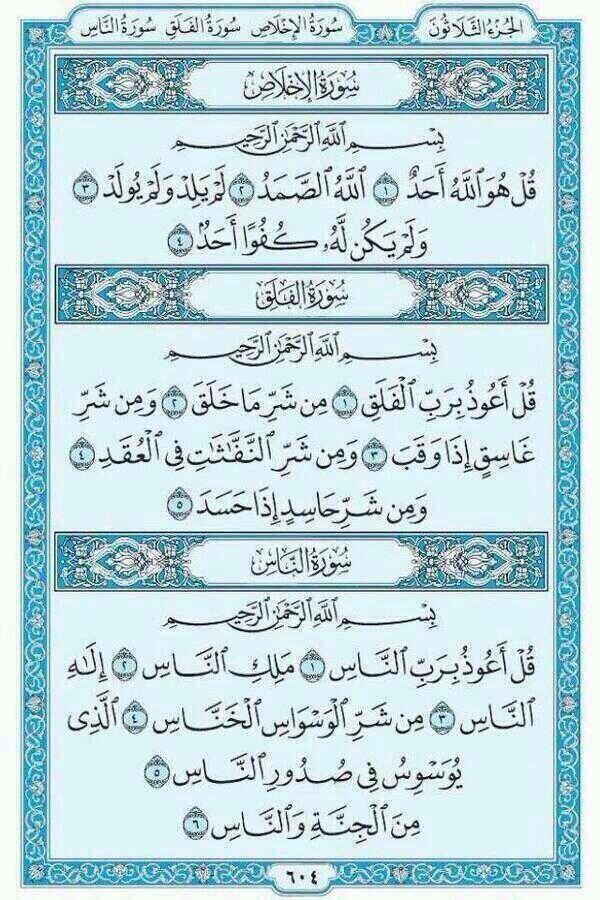 الجُزءُ الثَّلاثُونَ
سُورَةُ الإِخْلَاصِ سُورَةُ الفَلَقِ سُورَةُ النَّاسِ
سُورَةُ الإِخْلَاصِ
بِسْمِ ٱللَّهِ ٱلرَّحْمَٰنِ ٱلرَّحِيمِ
قُلْ هُوَ ٱللَّهُ أَحَدٌ ١ ٱللَّهُ ٱلصَّمَدُ ٢ لَمْ يَلِدْ وَلَمْ يُولَدْ ٣
وَلَمْ يَكُن لَّهُۥ كُفُوًا أَحَدٌۢ ٤
سُورَةُ الفَلَقِ
بِسْمِ ٱللَّهِ ٱلرَّحْمَٰنِ ٱلرَّحِيمِ
قُلْ أَعُوذُ بِرَبِّ ٱلْفَلَقِ ١ مِن شَرِّ مَا خَلَقَ ٢ وَمِن شَرِّ
غَاسِقٍ إِذَا وَقَبَ ٣ وَمِن شَرِّ ٱلنَّفَّٰثَٰتِ فِى ٱلْعُقَدِ ٤
وَمِن شَرِّ حَاسِدٍ إِذَا حَسَدَ ٥
سُورَةُ النَّاسِ
بِسْمِ ٱللَّهِ ٱلرَّحْمَٰنِ ٱلرَّحِيمِ
قُلْ أَعُوذُ بِرَبِّ ٱلنَّاسِ ١ مَلِكِ ٱلنَّاسِ ٢ إِلَٰهِ
ٱلنَّاسِ ٣ مِن شَرِّ ٱلْوَسْوَاسِ ٱلْخَنَّاسِ ٤ ٱلَّذِى
يُوَسْوِسُ فِى صُدُورِ ٱلنَّاسِ ٥
مِنَ ٱلْجِنَّةِ وَٱلنَّاسِ ٦
٦٠٤